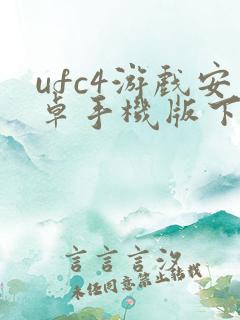 ufc4游戲安
卓手機版下
言言言沒
未经同意禁止转载